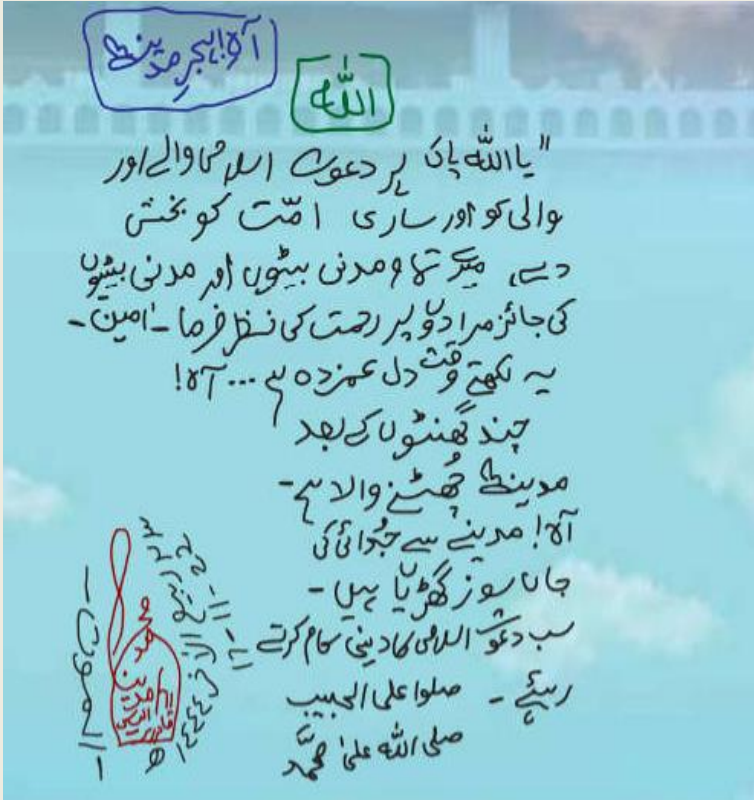 آہ! ہجرِ مدینہ
اللہ
"یا اللہ پاک ہر دعوت اسلامی والے اور
والی کو اور ساری امّت کو بخش
دے، میرے تمام مدنی بیٹوں اور مدنی بیٹیوں
کی جائز مرادوں پر رحمت کی نظر فرما۔ اٰمین۔
یہ لکھتے وقت دل غمزدہ ہے... آہ!
چند گھنٹوں کے بعد
مدینہ چُھٹنے والا ہے۔
آہ! مدینے سے جُدائی کی
جاں سوز گھڑیاں ہیں۔
سب دعوتِ اسلامی کا دینی کام کرتے
رہئے۔ صلوا علی الحبیب
صلی اللہ علیٰ محمَّد
محمد